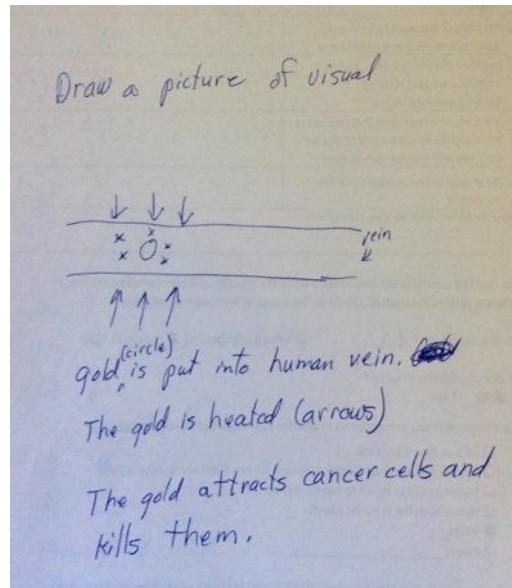 Draw a picture of visual
vein
(circle)
gold is put into human vein.
The gold is heated (arrows)
The gold attracts cancer cells and
kills them.